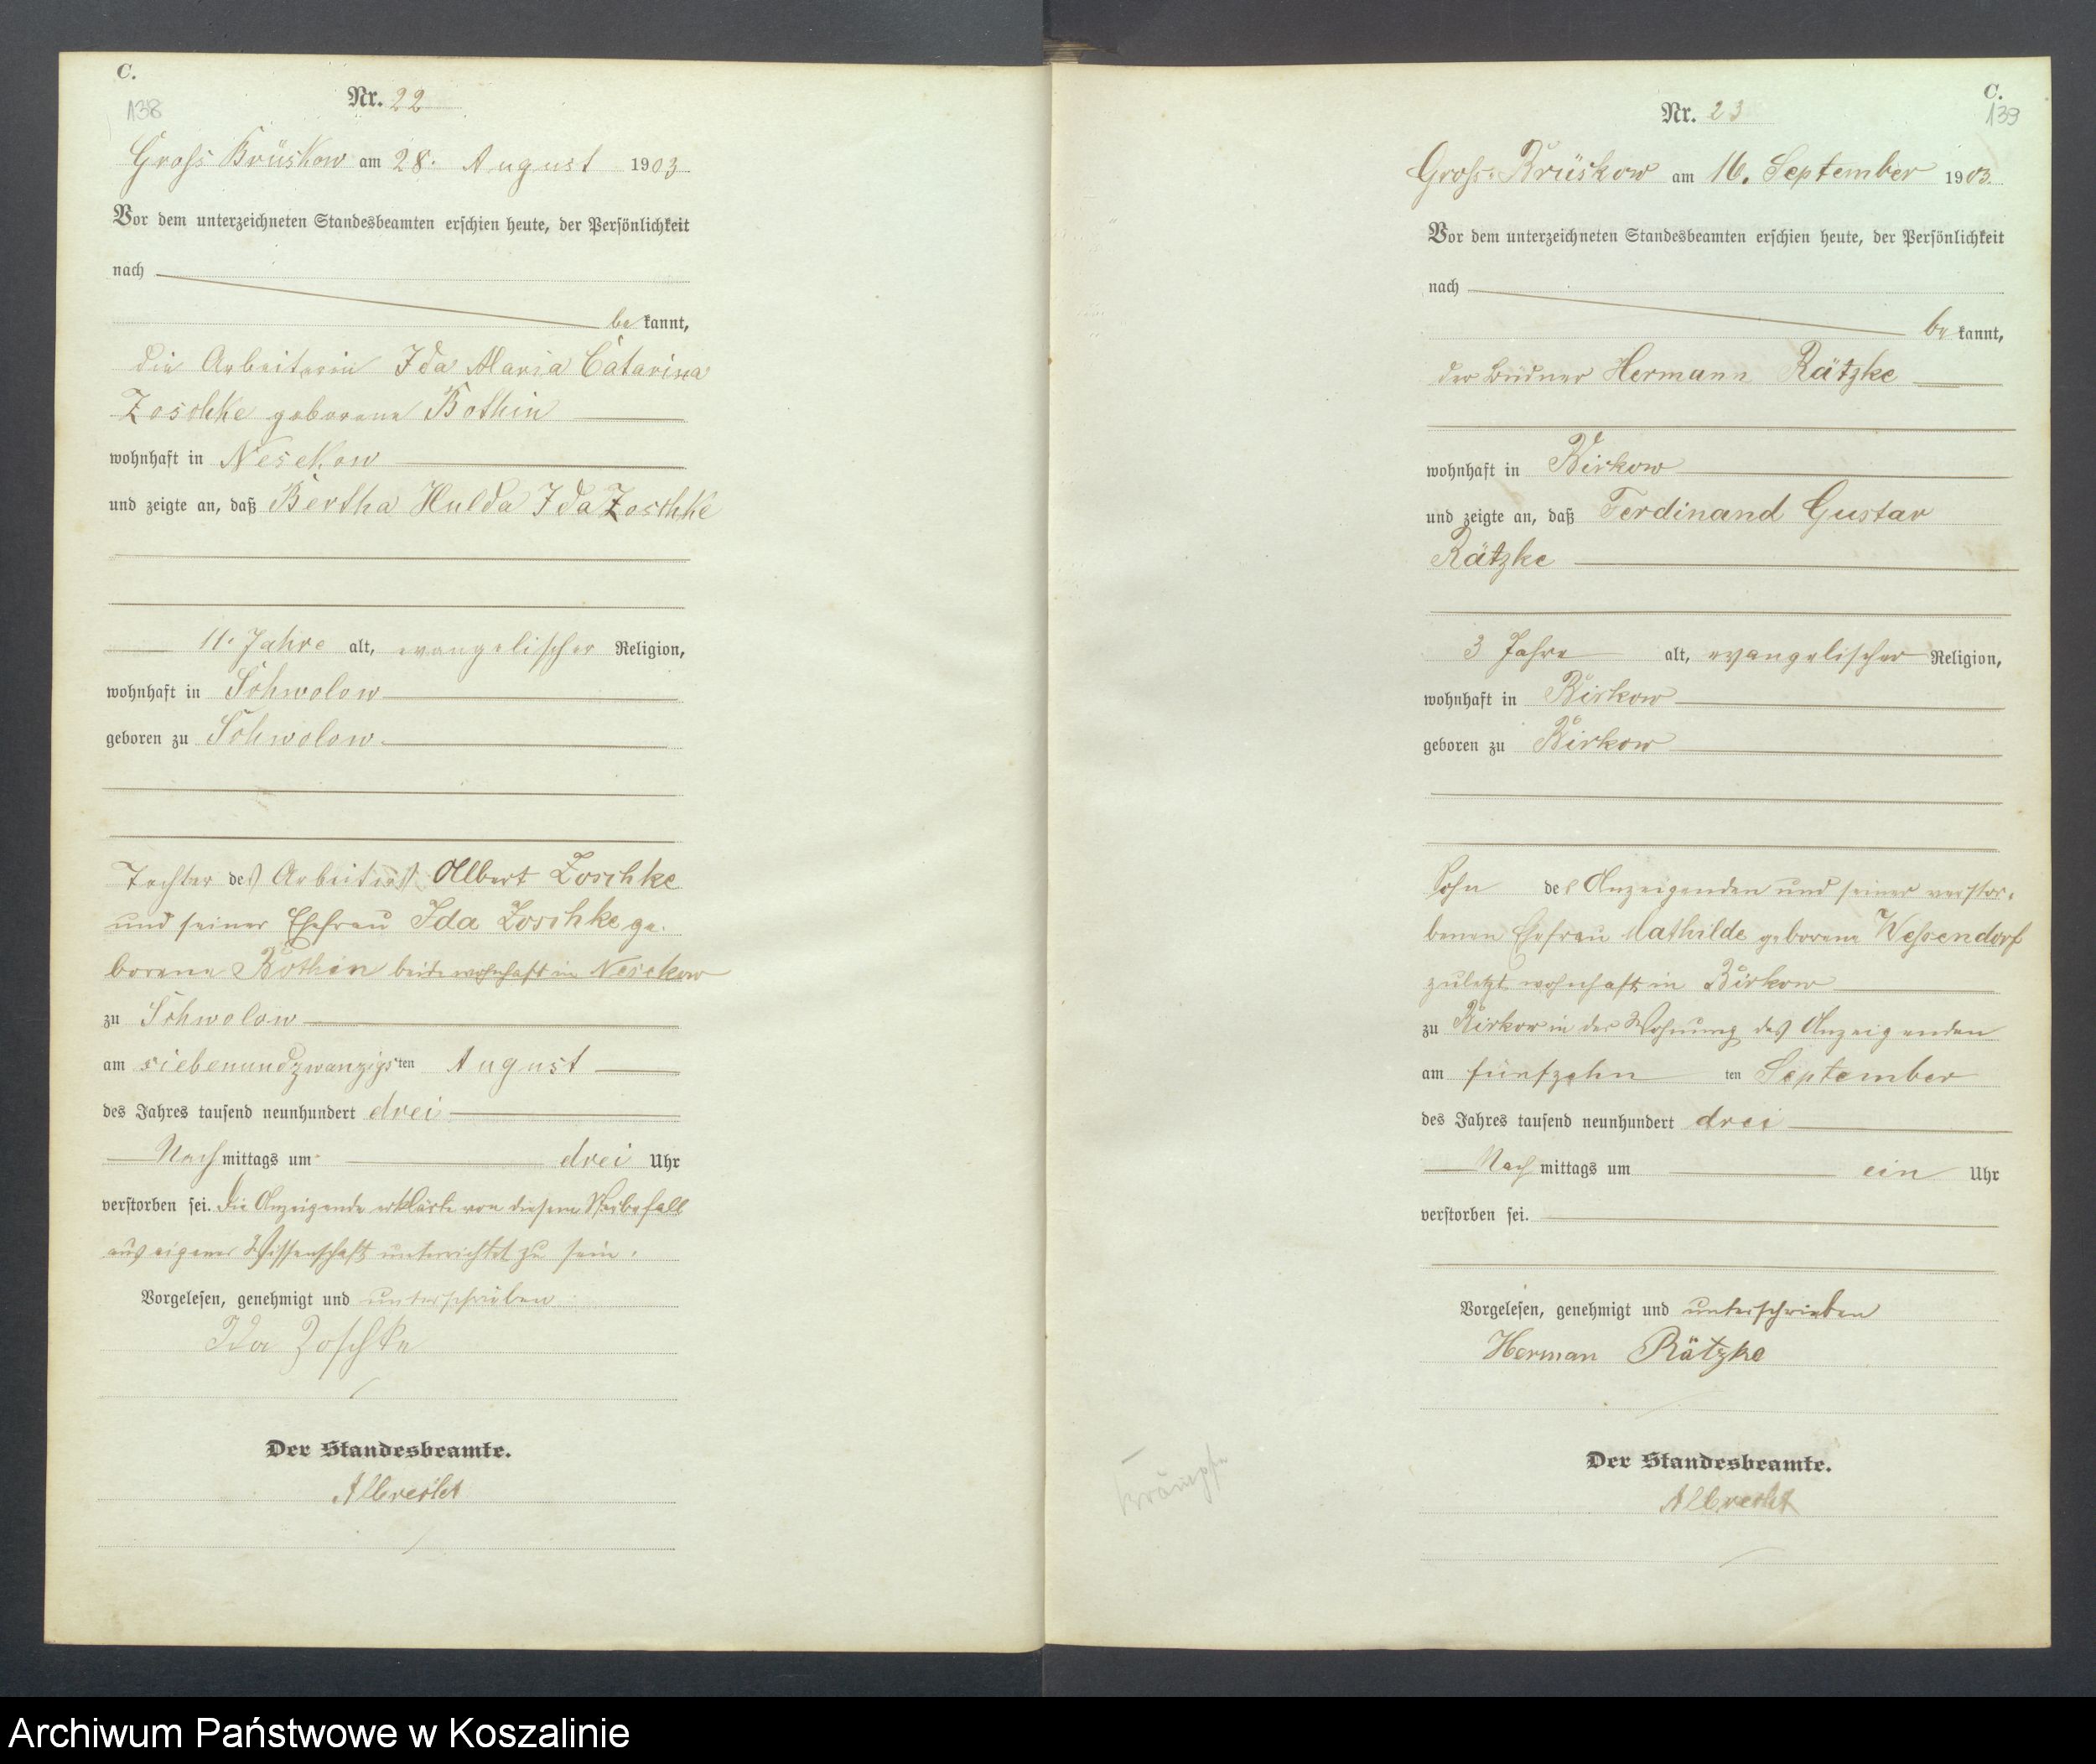 C.
138
Nr. 22
Gross Brüskow am 28. August 1903
Vor dem unterzeichneten Standesbeamten erschien heute, der Persönlichkeit
nach
bekannt,
die Arbeiterin Ida Maria Catarina
Zoschke geborene Bothin
wohnhaft in Nesekow
und zeigte an, daß Bertha Hulda Ida Zoschke
11 Jahre alt, evangelischer Religion,
wohnhaft in Schwolow
geboren zu Schwolow
Tochter des Arbeiters Albert Zoschke
und seiner Ehefrau Ida Zoschke ge-
borene Bothin beide wohnhaft in Nesekow
zu Schwolow
am siebenundzwanzigsten August
des Jahres tausend neunhundert drei
Nachmittags um drei Uhr
verstorben sei. Die Anzeigende erklärte von diesem Sterbefall
aus eigener Wissenschaft unterrichtet zu sein.
Vorgelesen, genehmigt und unterschrieben
Ida Zoschke
Der Standesbeamte.
Albrecht
C.
139
Nr. 23
Gross-Brüskow am 16. September 1903.
Vor dem unterzeichneten Standesbeamten erschien heute, der Persönlichkeit
nach
bekannt,
der Büdner Hermann Rätzke
wohnhaft in Birkow
und zeigte an, daß Ferdinand Gustav
Rätzke
3 Jahre alt, evangelischer Religion,
wohnhaft in Birkow
geboren zu Birkow
Sohn des Anzeigenden und seiner verstor-
benen Ehefrau Mathilde geborene Wessendorf
zuletzt wohnhaft in Birkow
zu Birkow in der Wohnung des Anzeigenden
am fünfzehnten September
des Jahres tausend neunhundert drei
Nachmittags um ein Uhr
verstorben sei.
Vorgelesen, genehmigt und unterschrieben
Herman Rätzke
Krämpfe
Der Standesbeamte.
Albrecht
Archiwum Państwowe w Koszalinie